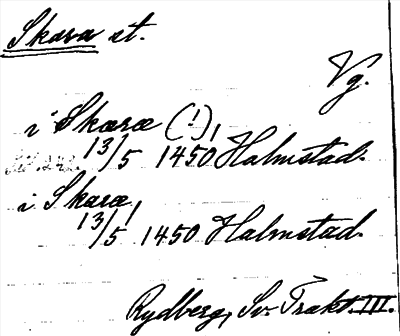 Skara st.
Vg.
i Skaræ (!),
13/5 1450 Halmstad.
i Skaræ,
13/5 1450 Halmstad.
Rydberg, Sv. Trakt. III.